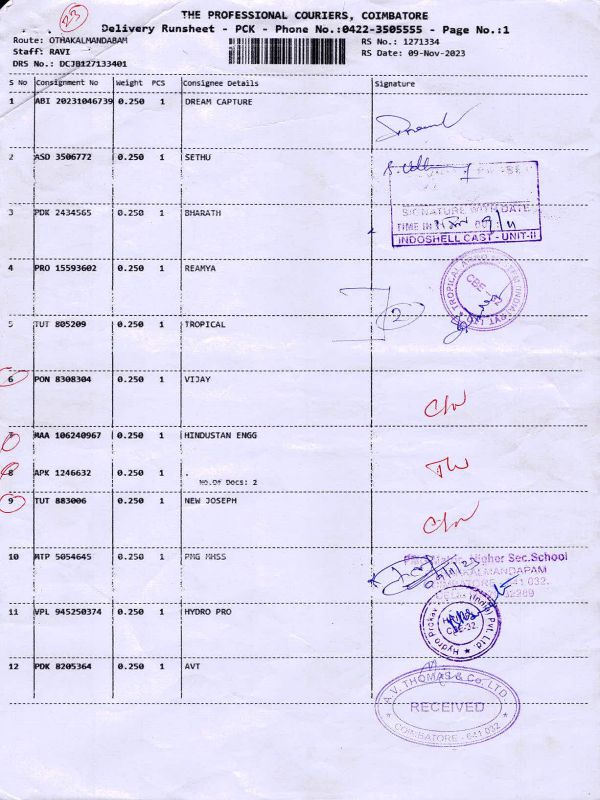 23
THE PROFESSIONAL COURIERS, COIMBATORE
Delivery Runsheet - PCK - Phone No.:0422-3505555 - Page No.:1
Route: OTHAKALMANDABAM RS No.: 1271334
Staff: RAVI RS Date: 09-Nov-2023
DRS No.: DCJB127133401
S No Consignment No Weight PCS Consignee Details Signature
1 ABI 20231046739 0.250 1 DREAM CAPTURE
2 ASD 3506772 0.250 1 SETHU
SIGNATURE WITH DATE
3 PDK 2434565 0.250 1 BHARATH
TIME IN
INDOSHELL CAST - UNIT-II
4 PRO 15593602 0.250 1 REAMYA
CBE -
2
5 TUT 805209 0.250 1 TROPICAL
6 PON 8308304 0.250 1 VIJAY
7 MAA 106240967 0.250 1 HINDUSTAN ENGG
8 APK 1246632 0.250 1 .
No.Of Docs: 2
9 TUT 883006 0.250 1 NEW JOSEPH
10 MTP 5054645 0.250 1 PMG MHSS
Higher Sec.School
11 VPL 945250374 0.250 1 HYDRO PRO
Hydro Prokav Pvt Ltd
CBE-32
12 PDK 8205364 0.250 1 AVT
A.V. THOMAS & Co. LTD.
RECEIVED
COIMBATORE - 641 032